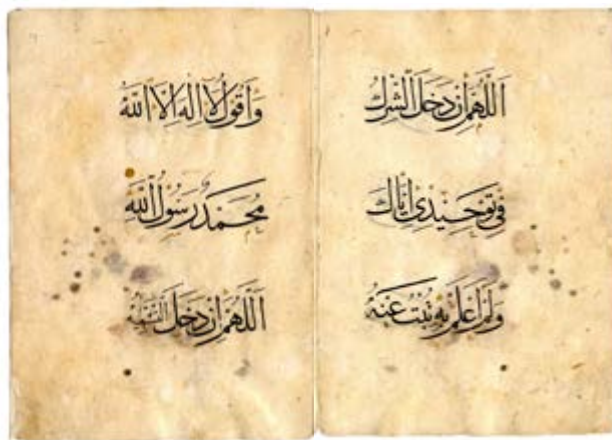 اللَّهُمَّ إِنْ دَخَلَ الشِّرْكُ
فِي تَوْحِيدِي إِيَّاكَ
وَلَمْ أَعْلَمْ بِهِ تُبْتُ عَنْهُ
وَأَقُولُ لَا إِلَهَ إِلَّا اللَّهُ
مُحَمَّدٌ رَسُولُ اللَّهِ
اللَّهُمَّ إِنْ دَخَلَ